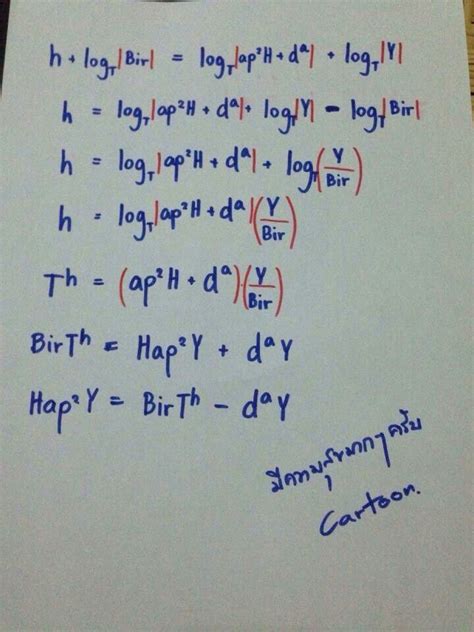 h + log_T|Bir| = log_T|ap²H + dᵃ| + log_T|Y|
h = log_T|ap²H + dᵃ| + log_T|Y| - log_T|Bir|
h = log_T|ap²H + dᵃ| + log_T(Y/Bir)
h = log_T|ap²H + dᵃ|(Y/Bir)
Tʰ = (ap²H + dᵃ)·(Y/Bir)
BirTʰ = Hap²Y + dᵃY
Hap²Y = BirTʰ - dᵃY
มีความสุขมากๆครับ
Cartoon.